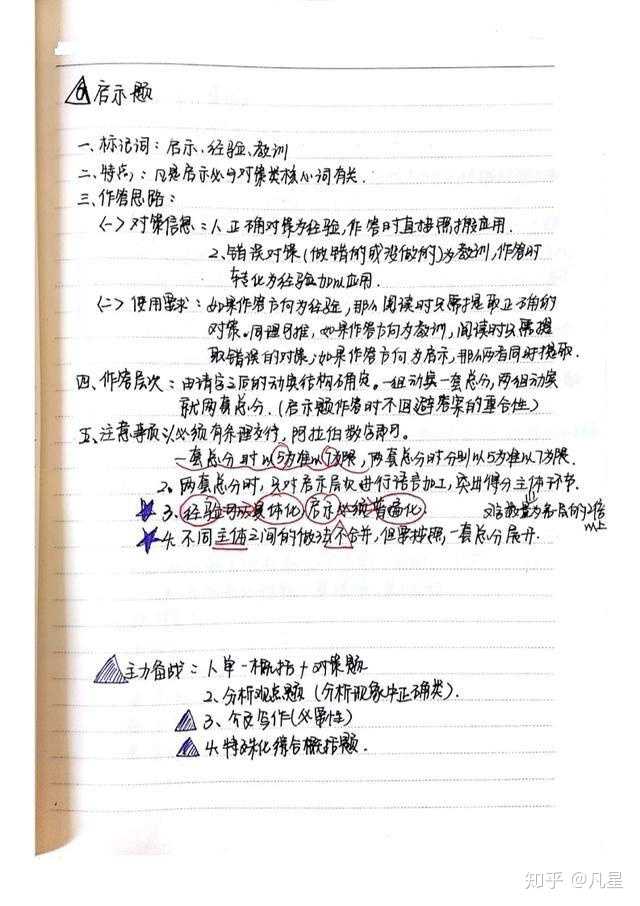 ⑥启示题
一、标记词：启示、经验、教训
二、特点：凡是启示必与对策类核心词有关.
三、作答思路：
㈠对策信息：1.正确对策为经验,作答时直接照搬应用.
2.错误对策(做错的或没做的)为教训,作答时
转化为经验加以应用.
㈡使用要求：如果作答方向为经验,那么阅读时只需提取正确的
对策。同理可推,如果作答方向为教训,阅读时只需提
取错误的对策;如果作答方向为启示,那么两者同时提取.
四、作答层次：由请字之后的动宾结构确定。一组动宾一套总分,两组动宾
就两套总分.(启示题作答时不回避答案的重合性)
五、注意事项：1.必须有条理支行,阿拉伯数字即可。
一套总分时以5为准以7为限,两套总分时分别以5为准以7为限.
2、两套总分时,只对启示层次进行语言加工,突出得分主体环节.
3.经验可以具体化,启示必须普遍化.
对启数量为各层的2倍
以上
4.不同主体之间的做法不合并,但要按照,一套总分展开.
主力备战：1.单一概括+对策题
2.分析观点题(分析现象中正确类).
3、公文写作(必要性)
4.特殊化综合概括题.
知乎 @凡星